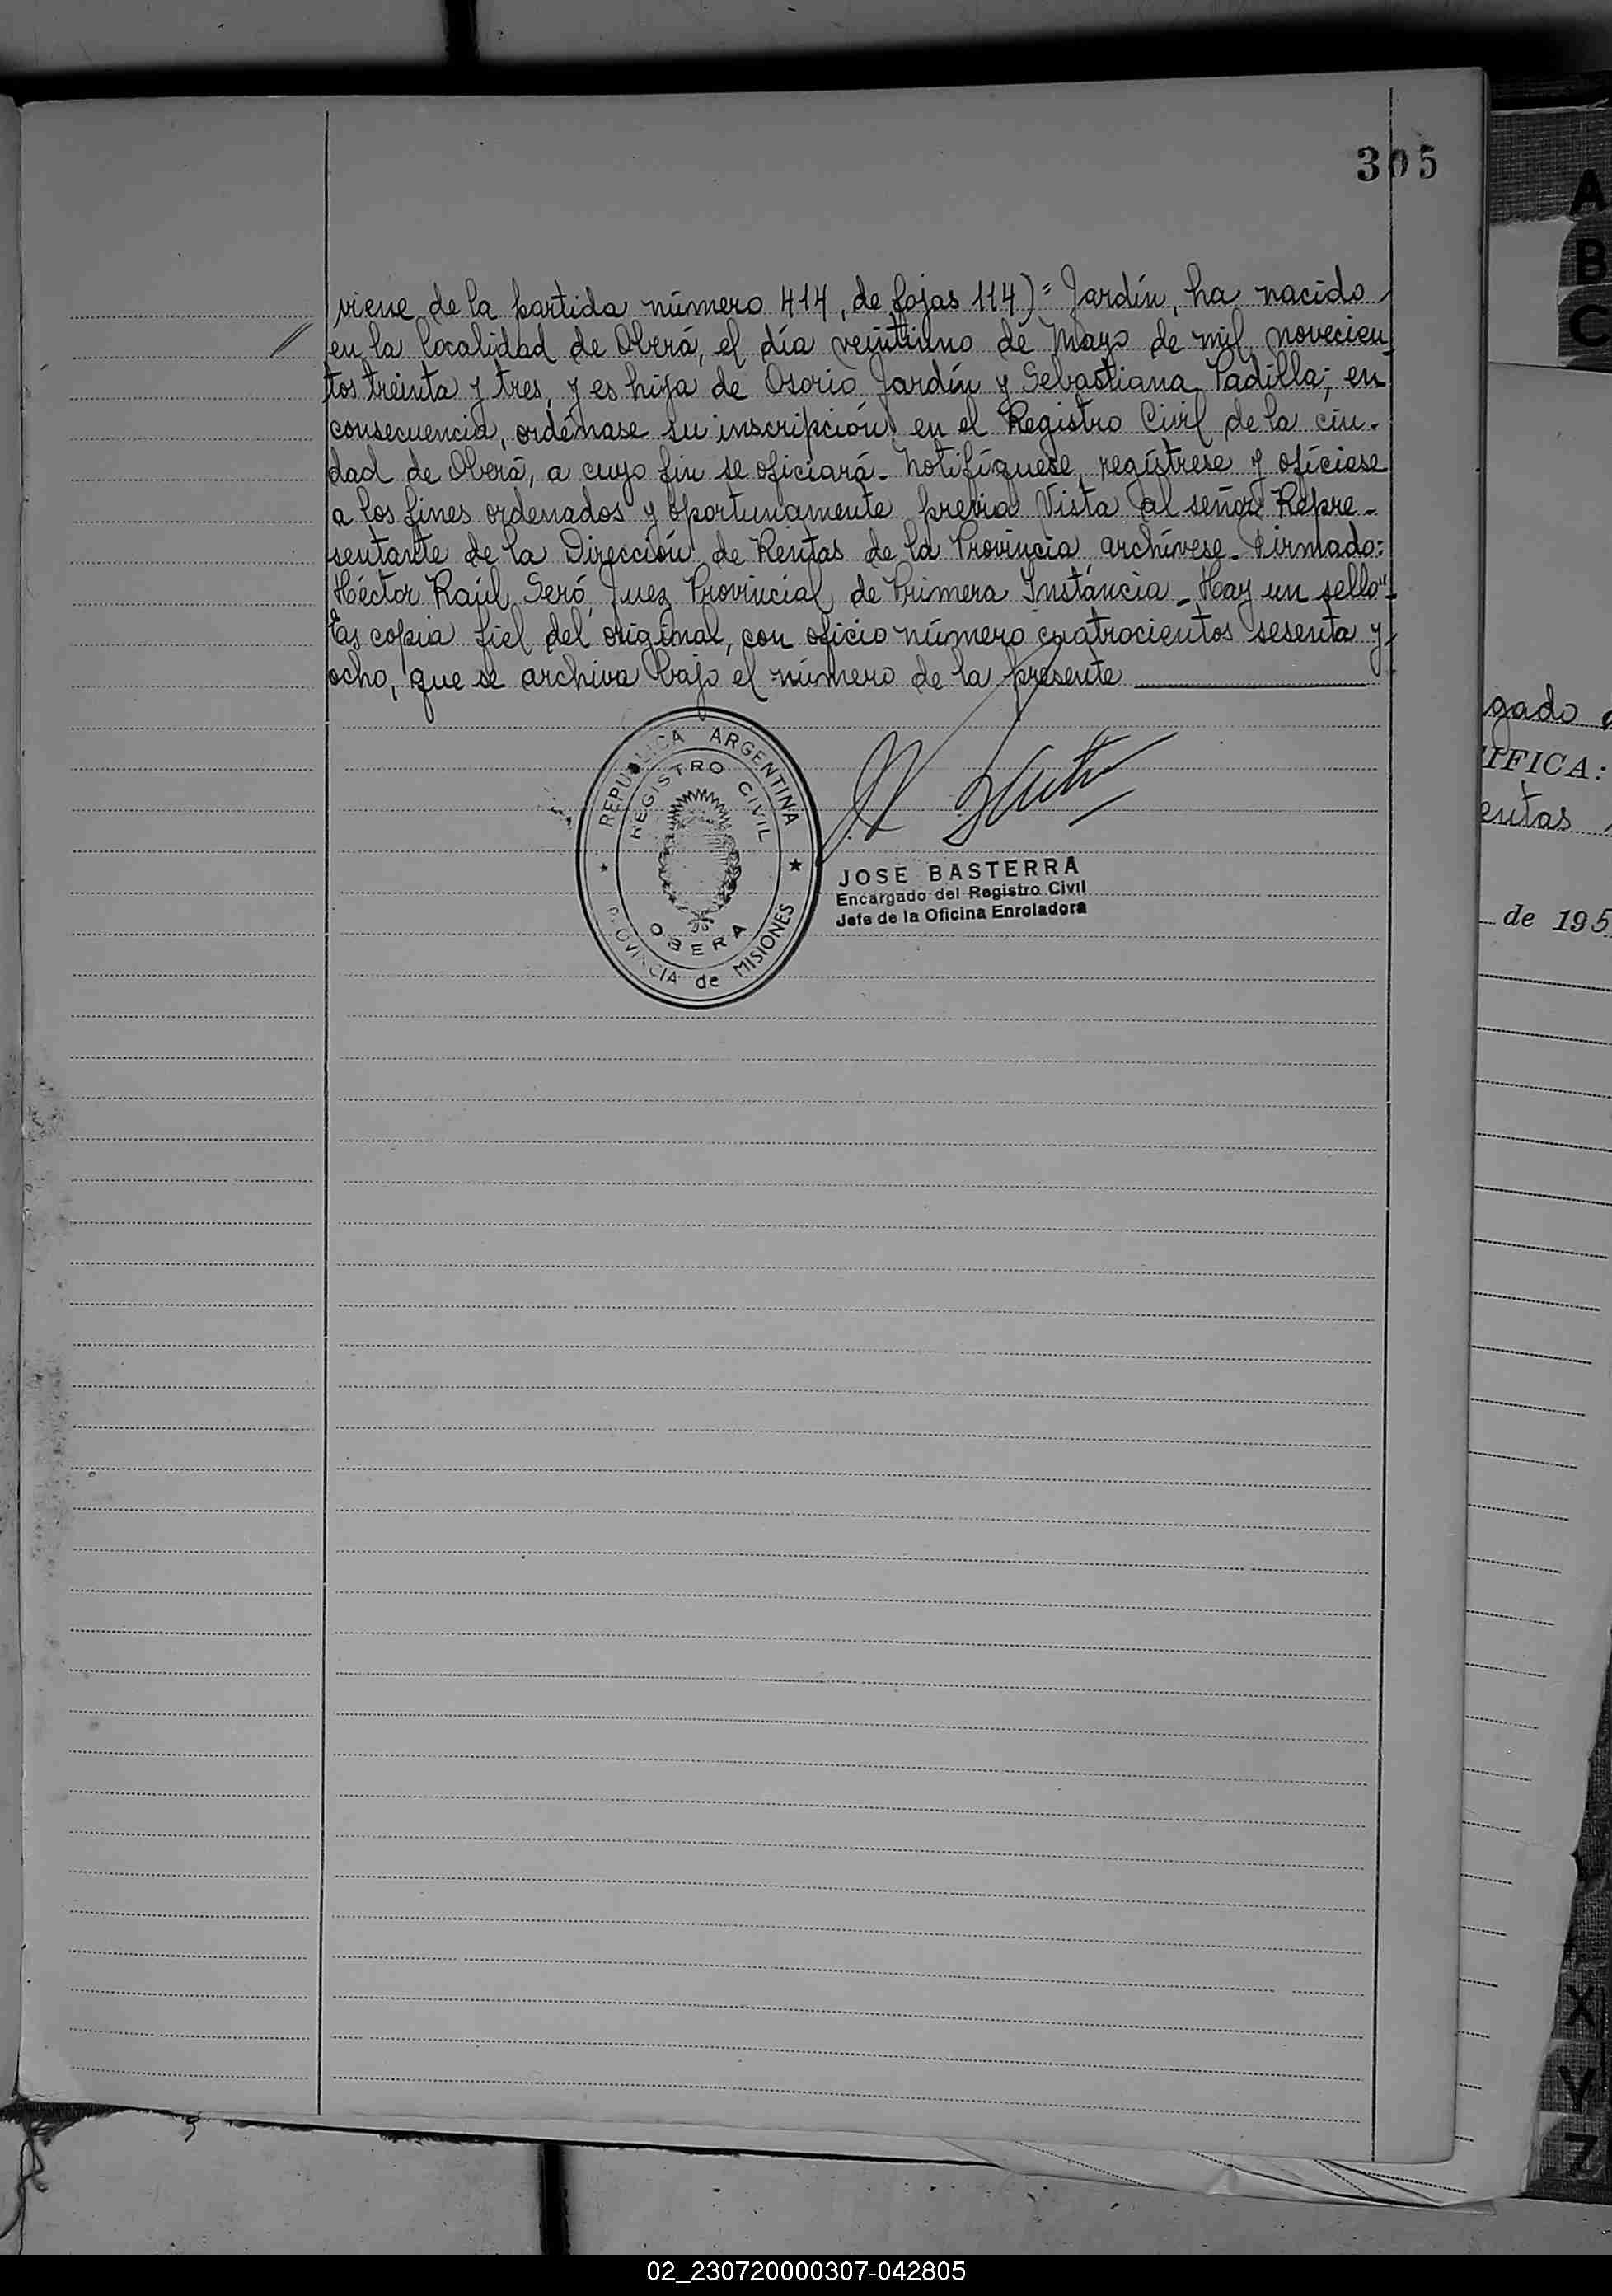 305
viene de la partida número 414, de fojas 114)= Jardín, ha nacido
en la localidad de Oberá, el día veintiuno de Mayo de mil novecien-
tos treinta y tres, y es hija de Osorio Jardín y Sebastiana Padilla; en
consecuencia, ordénase su inscripción en el Registro Civil de la ciu-
dad de Oberá, a cuyo fin se oficiará. Notifíquese, regístrese y ofíciese
a los fines ordenados y oportunamente previa Vista al señor Repre-
sentante de la Dirección de Rentas de la Provincia, archívese. Firmado:
Héctor Raúl Seró, Juez Provincial de Primera Instancia - Hay un sello"-
Es copia fiel del original, con oficio número cuatrocientos sesenta y
ocho, que se archiva bajo el número de la presente
REPUBLICA ARGENTINA
REGISTRO CIVIL
OBERA
PROVINCIA de MISIONES
JOSE BASTERRA
Encargado del Registro Civil
Jefe de la Oficina Enroladora
gado
IFICA:
entas
de 195
A
B
C
X
Y
Z
02_230720000307-042805